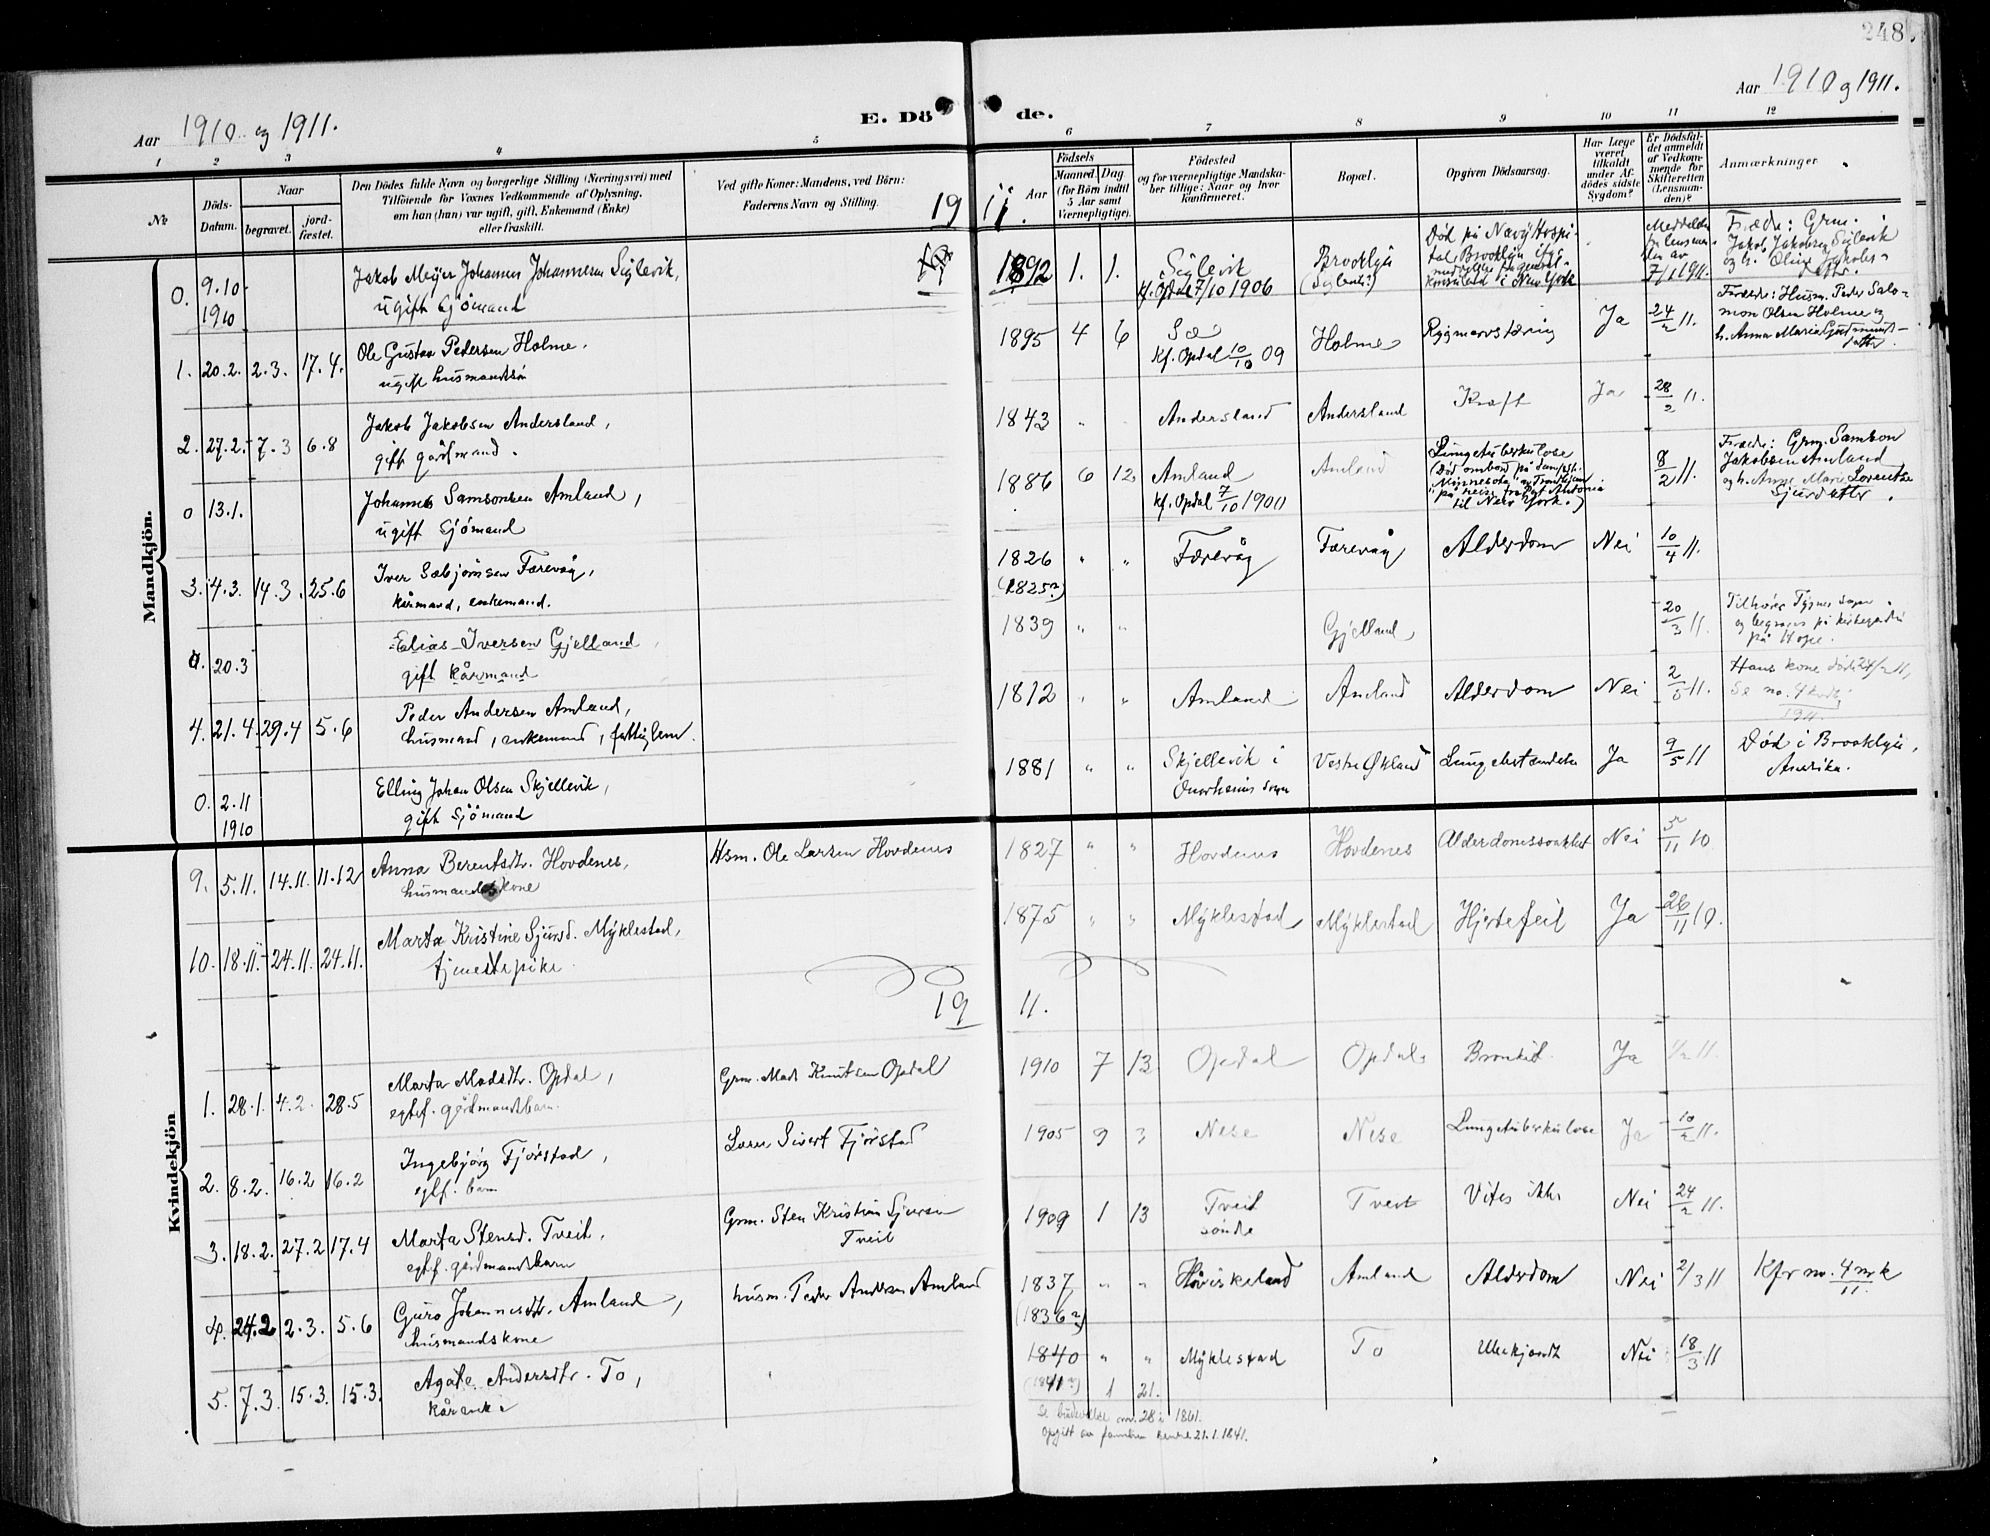 248
Aar 1910 og 1911.
E. Dö de.
Aar 1910 og 1911.
1 2 3 4 5 6 7 8 9 10 11 12
No
Döds-
Datum.
Naar
begravet.
jord-
fæstet.
Den Dödes fulde Navn og borgerlige Stilling (Næringsvei) med
Tilföiende for Voxnes Vedkommende af Oplysning,
om han (hun) var ugift, gift, Enkemand (Enke)
eller fraskilt.
Ved gifte Koner: Mandens, ved Börn:
Faderens Navn og Stilling.
Födsels
Aar
Maaned Dag
(for Börn indtil
5 Aar samt
Værnepligtige).
Födested
og for værnepligtige Mandska-
ber tillige: Naar og hvor
konfirmeret.
Bopæl.
Opgiven Dödsaarsag.
Har Læge
været
tilkaldt
under Af-
dödes sidste
Sygdom?
Er Dödsfal-
det anmeldt
af Vedkom-
mende for
Skifteretten
(Lensman-
den)?
Anmærkninger
19 11.
Mandkjön.
0. 9.10 1910
Jakob Meyer Johannes Johannesen Siglevik,
ugift Sjömand
1892 1. 1.
Siglevik
kf. Opdal 7/10 1906
Brooklyn
Död på Navy Hospi-
tal Brooklyn
konsulat i New York
7/1 1911.
Forældre: Grm.
Jakob Jakobsen Siglevik
1. 20.2. 2.3. 17.4.
Ole Gustav Pedersen Holme.
ugift husmandssön
1895 4 6
Sæ
Kf. Opdal 10/10 09
Holme
Rygmarvstæring
Ja
24/2 11.
Forældre: Husm. Peder Salo-
mon Olsen Holme og
h. Anna Maria Gudmunds-
datter.
2. 27.2. 7.3 6.8
Jakob Jakobsen Andersland,
gift gårdmand.
1843
Andersland
Andersland
Kræft
Ja
28/2 11.
0 13.1.
Johannes Samsonsen Amland,
ugift Sjömand
1886 6 12
Amland
kf. Opdal 7/10 1900
Amland
Lungetuberkulose
til New York.)
8/2 11.
Forældre: Grm. Samson
Jakobsen Amland
og h. Anne Marie Lorentse
Sjursdatter.
3. 4.3. 14.3. 25.6
Iver Sæbjörnsen Færevåg,
kårmand, enkemand.
1826 " "
(1825?)
Færevåg
Færevåg
Alderdom
Nei
10/4 11.
0. 20.3
Elias Iversen Gjelland
gift kårmand
1839 " "
Gjelland
20/3 11.
Tilhörer Tysnes sogn
og begraves på kirkegården
på Hope.
4. 21.4. 29.4 5.6
Peder Andersen Amland,
husmand, enkemand, fattiglem.
1812 " "
Amland
Amland
Alderdom
Nei
2/5 11.
Hans kone död 24/2 11,
Se no. 4
1911.
0. 2.11 1910
Elling Johan Olsen Skjellevik,
gift Sjömand
1881 " "
Skjellevik i
Onarheims sogn
Vestre Økland
Lungebetændelse
Ja
9/5 11
Död i Brooklyn,
Amerika.
Kvindekjön
9. 5.11. 14.11. 11.12
Anna Berentsdtr. Hovdenes,
husmandskone
Hsm. Ole Larsen Hovdenes
1827 " "
Hovdenes
Hovdenes
Alderdomssvakhet
Nei
5/11 10
10. 18.11. 24.11. 24.11.
Marta Kristine Sjursd. Myklestad,
tjenestepike.
1875 " "
Myklestad
Myklestad
Hjertefeil
Ja
26/11 10.
19 11.
1. 28.1. 4.2. 28.5
Marta Madsdtr. Opdal,
egtef. gårdmandsbarn.
Grm. Mads Knutsen Opdal
1910 7 13
Opdal
Opdal
Bronkit.
Ja
1/2 11.
2. 8.2. 16.2 16.2
Ingebjörg Fjörstad,
egtf. barn
Lærer Sivert Fjörstad
1905 9 3
Nese
Nese
Lungetuberkulose
Ja
10/2 11.
3. 18.2. 27.2 17.4
Marta Stensd. Tveit,
egtf. gårdmandsbarn
Grm. Sten Kristian Sjursen
Tveit
1909 1 13
Tveit
söndre
Tveit
Vites ikke
Nei
24/2 11.
4. 24.2 2.3. 5.6
Guro Johannesdtr. Amland,
husmandskone
husm. Peder Andersen Amland
1837 " "
(1836?)
Håviskeland
Amland
Alderdom
Nei
2/3 11
Kfr no. 4 mk
11.
5. 7.3. 15.3. 15.3.
Agate Andersdtr. To,
kårenke
1840 " "
(1841?) 1 21.
Myklestad
To
Ubekjendt
Nei
18/3 11
Se no. 28 i 1861.
opgitt av familien 21.1.1841.